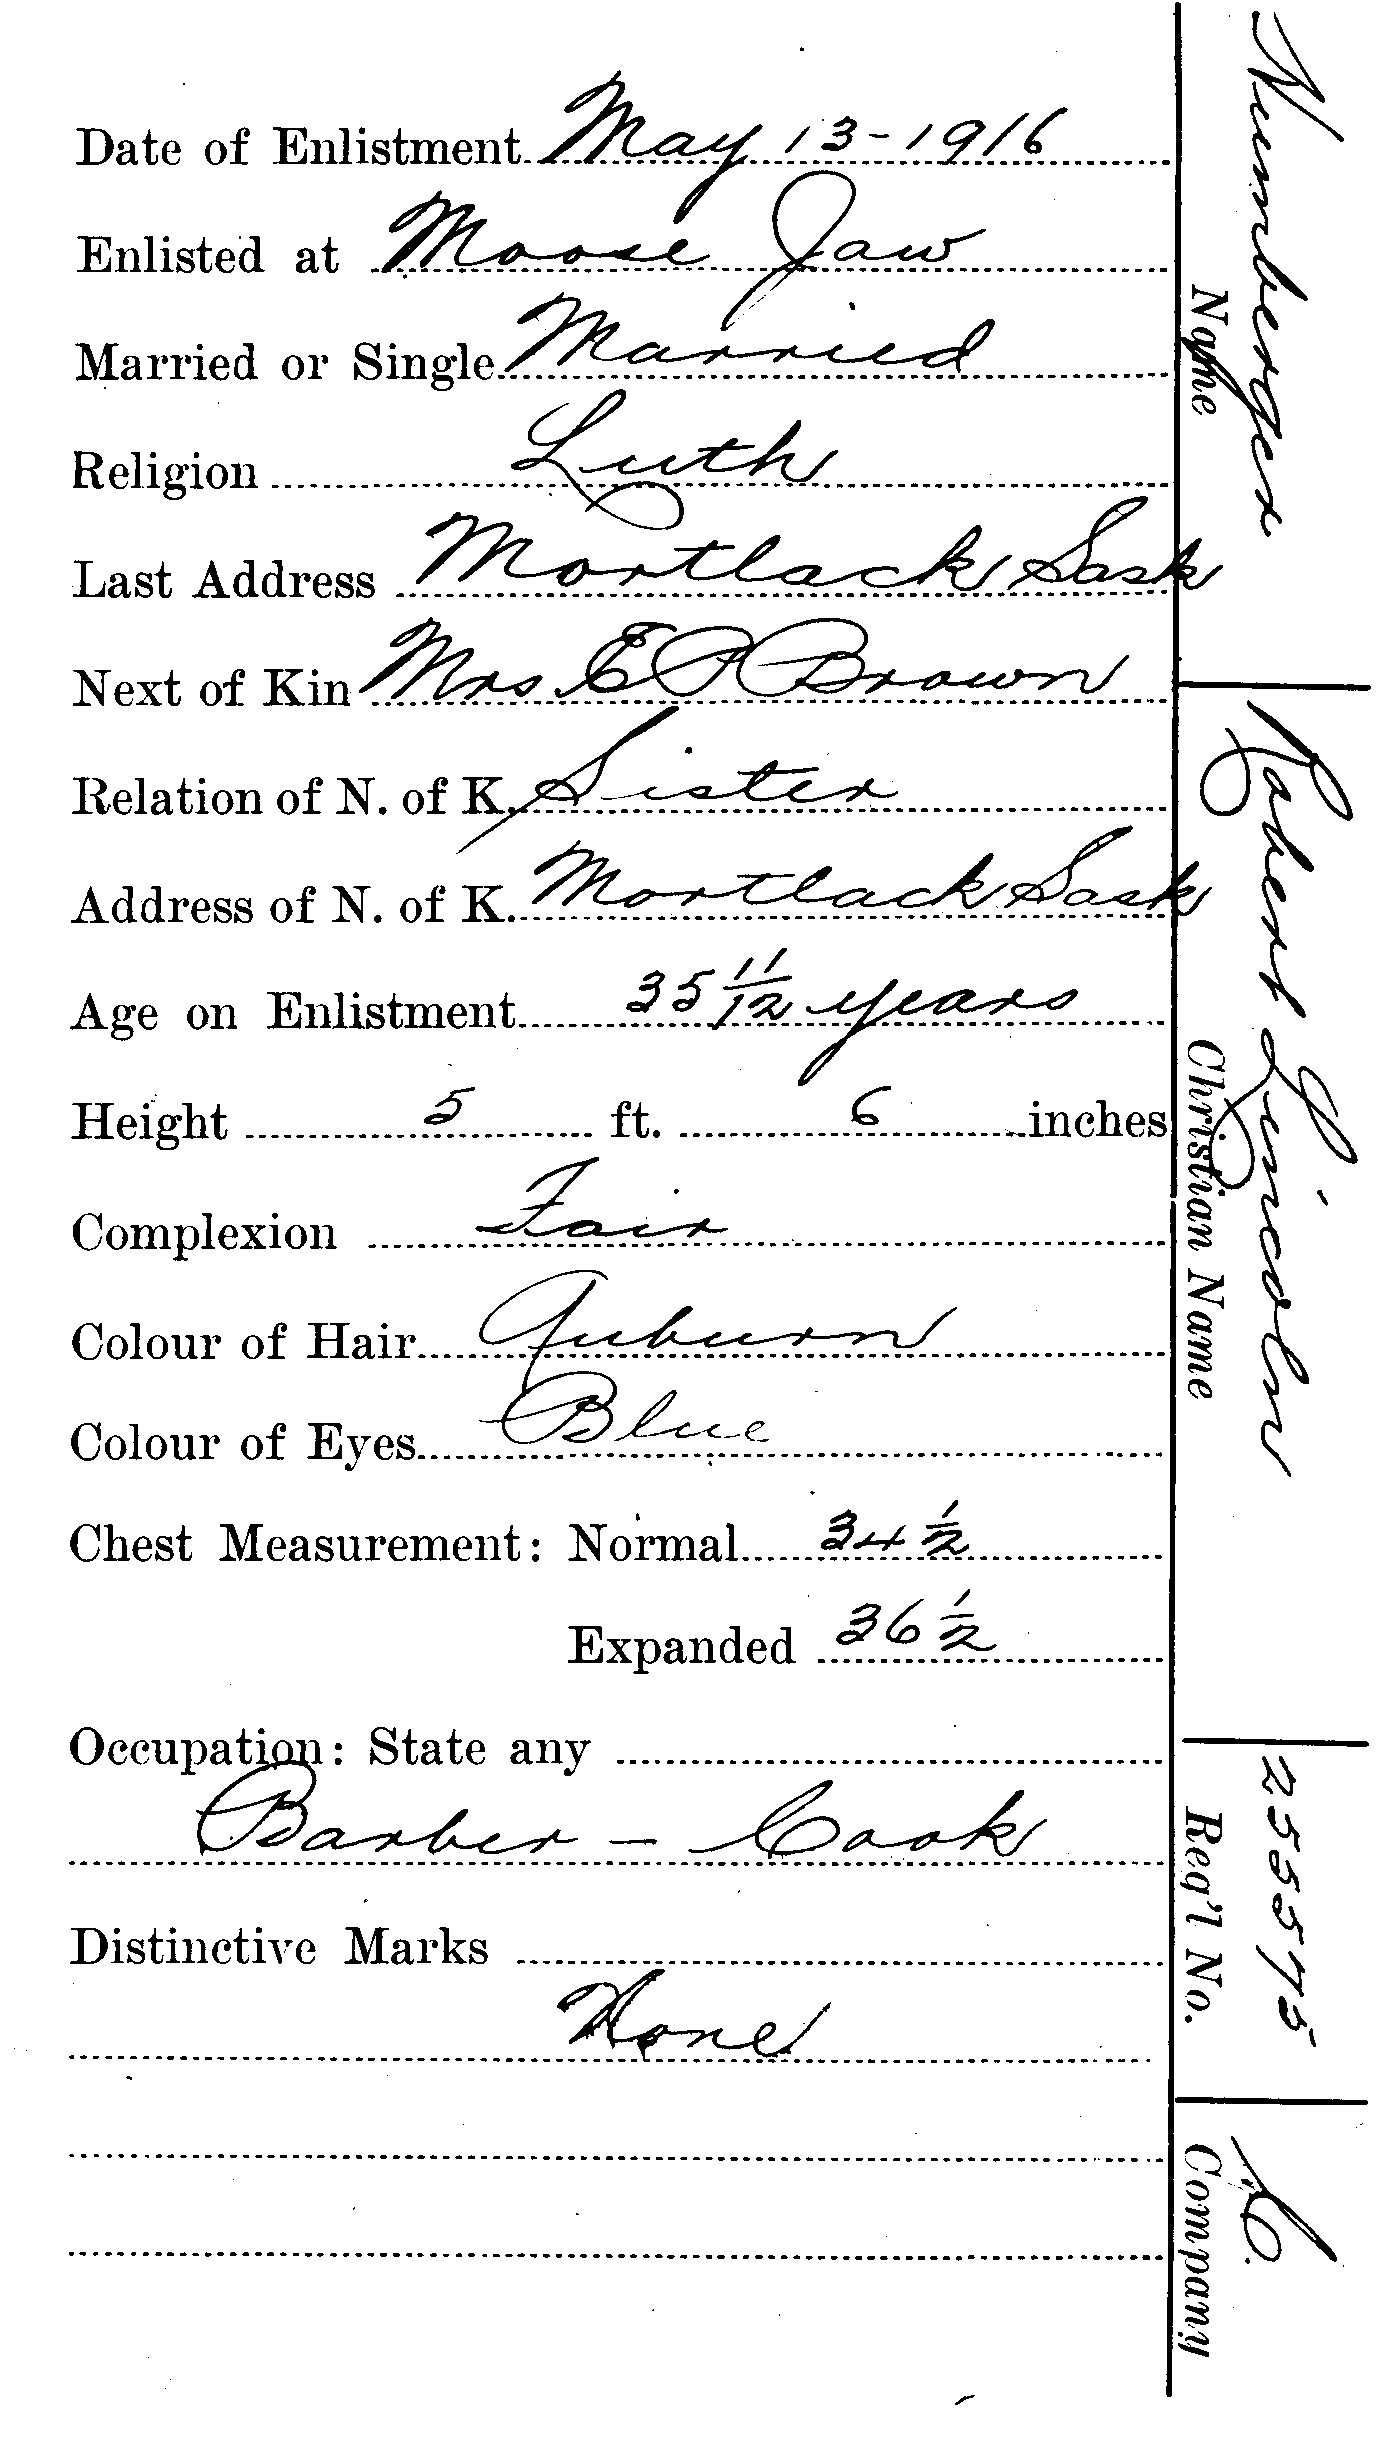 Date of Enlistment May 13-1916
Enlisted at Moose Jaw
Married or Single Married
Religion Luth
Last Address Mortlack Sask
Next of Kin Mrs E P Brown
Relation of N. of K. Sister
Address of N. of K. Mortlack Sask
Age on Enlistment 35 11/12 years
Height 5 ft. 6 inches
Complexion Fair
Colour of Hair Auburn
Colour of Eyes Blue
Chest Measurement: Normal 34 1/2
Expanded 36 1/2
Occupation: State any
Barber - Cook
Distinctive Marks
None
Numberger
Name
Robert Lincoln
Christian Name
255575
Reg'l No.
C.
Company